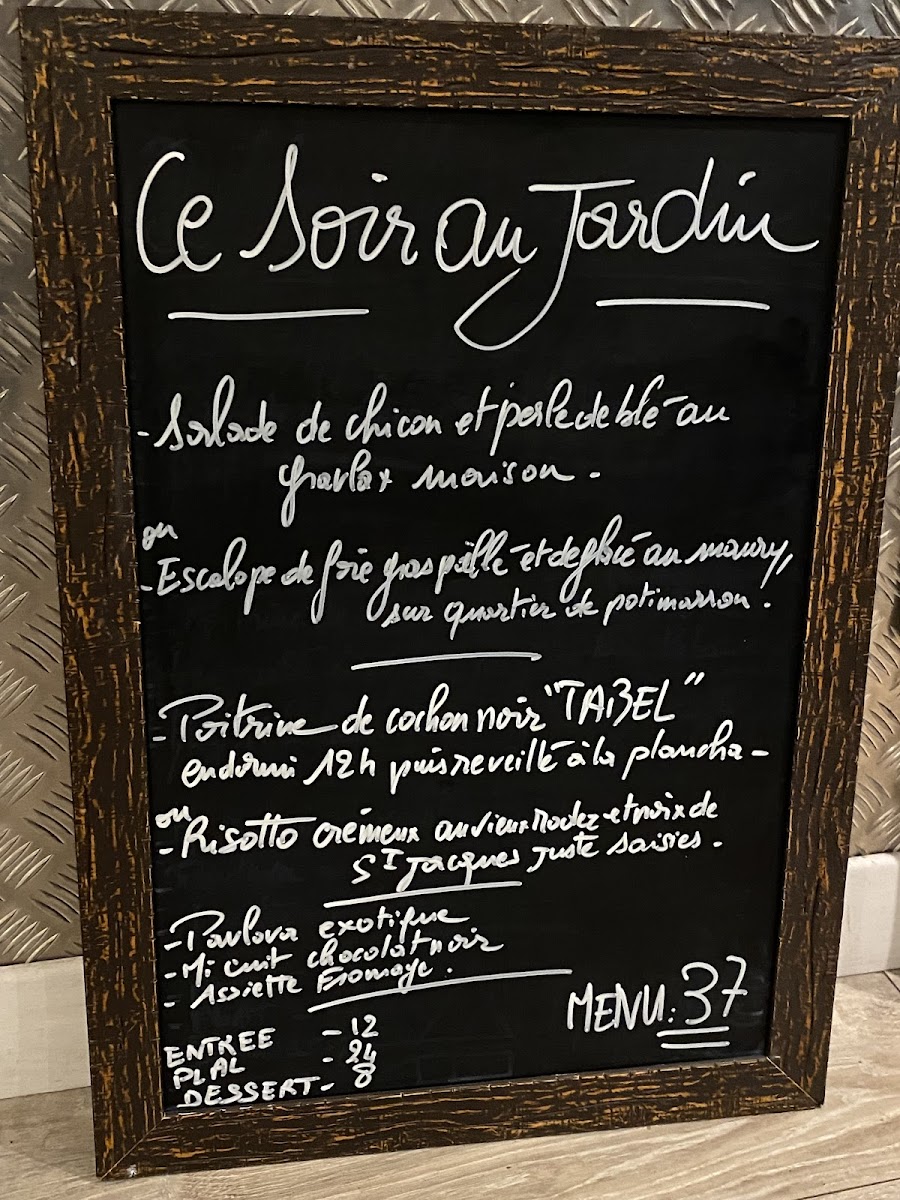 Ce Soir au Jardin
- Salade de chicon et perle de blé au
gravlax maison.
ou
- Escalope de foie gras poêllé et deglacé au maury,
sur quartier de potimarron.
- Poitrine de cochon noir "TABEL"
endormi 12h puis reveillé à la plancha -
ou
- Risotto crémeux au vieux Rodez et noix de
St Jacques juste saisies.
- Pavlova exotique
- Mi cuit chocolat noir
- Assiette Fromage.
MENU: 37
ENTREE - 12
PLAL - 24
DESSERT - 8